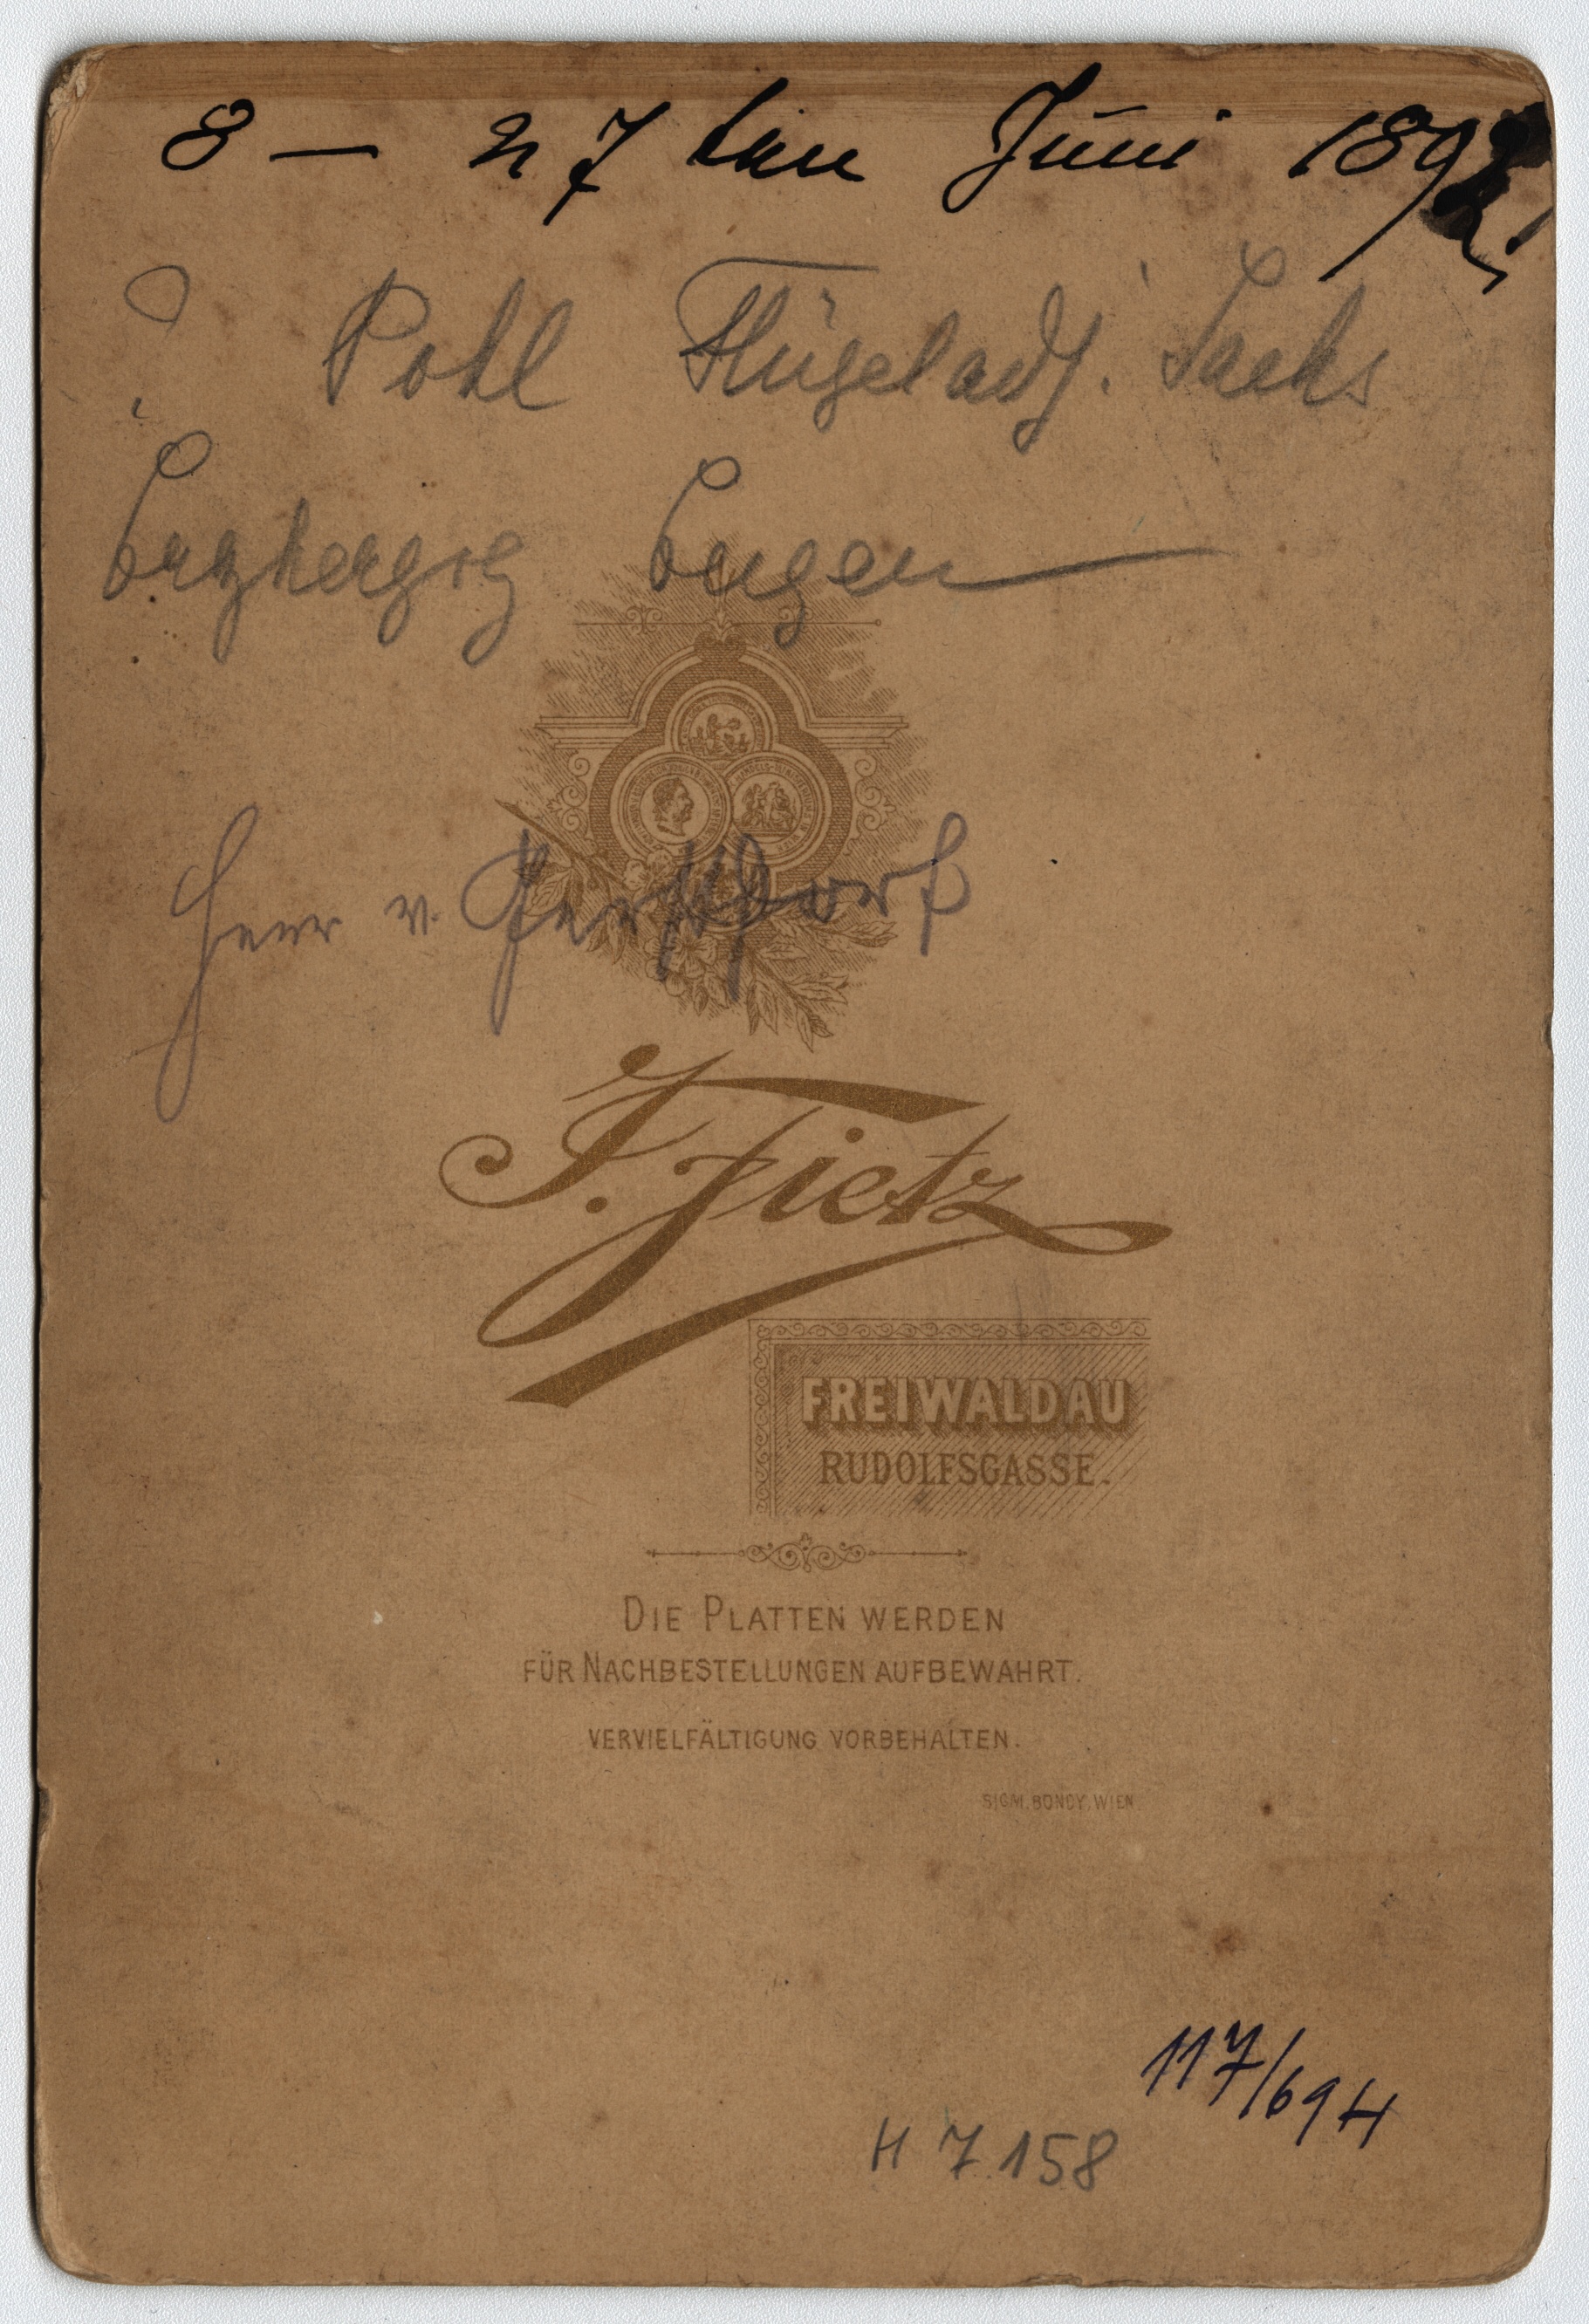 8 — 27 ten Juni 1892.
? Pohl Flügeladj. Sachs
Erzherzog Eugen
Herr v.
J. Fietz
FREIWALDAU
RUDOLFSGASSE.
DIE PLATTEN WERDEN
FÜR NACHBESTELLUNGEN AUFBEWAHRT.
VERVIELFÄLTIGUNG VORBEHALTEN.
SIGM. BONDY. WIEN
117/694
H 7.158